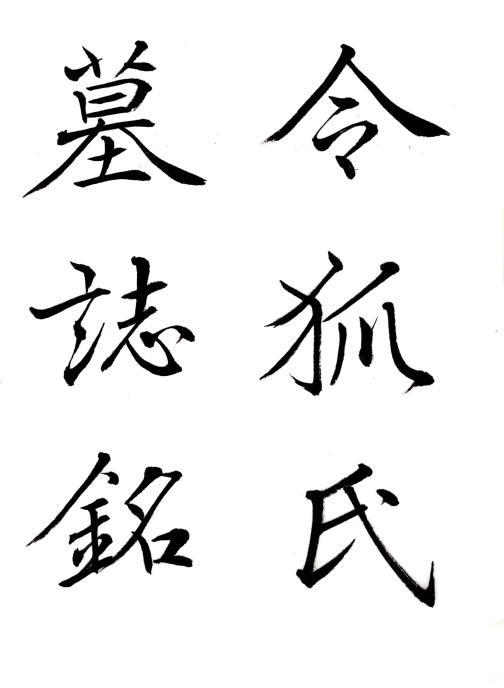 令狐氏
墓誌銘